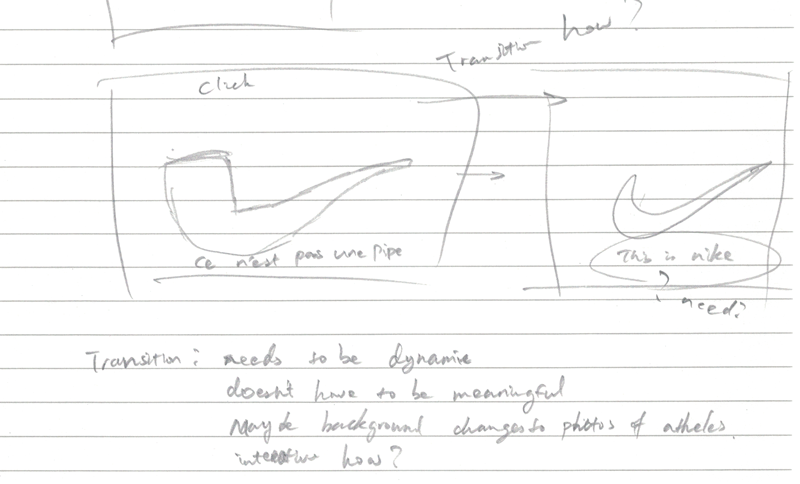 Transition how?
Click
ce n'est pas une pipe
This is nike
? need?
Transition: needs to be dynamic
doesn't have to be meaningful
Maybe background changes to photos of atheles.
how?